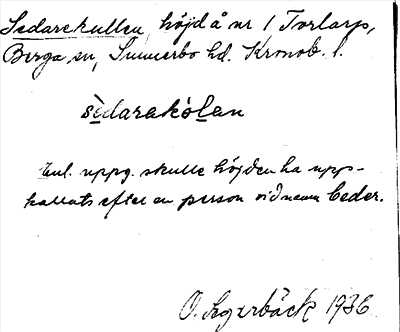 Sedarekullen, höjd å nr 1 Torlarp,
Berga sn, Sunnerbo hd. Kronob. l.
sèdarakòlan
Enl. uppg. skulle höjden ha upp-
kallats efter en person vid namn Ceder.
O. Agerbäck 1936